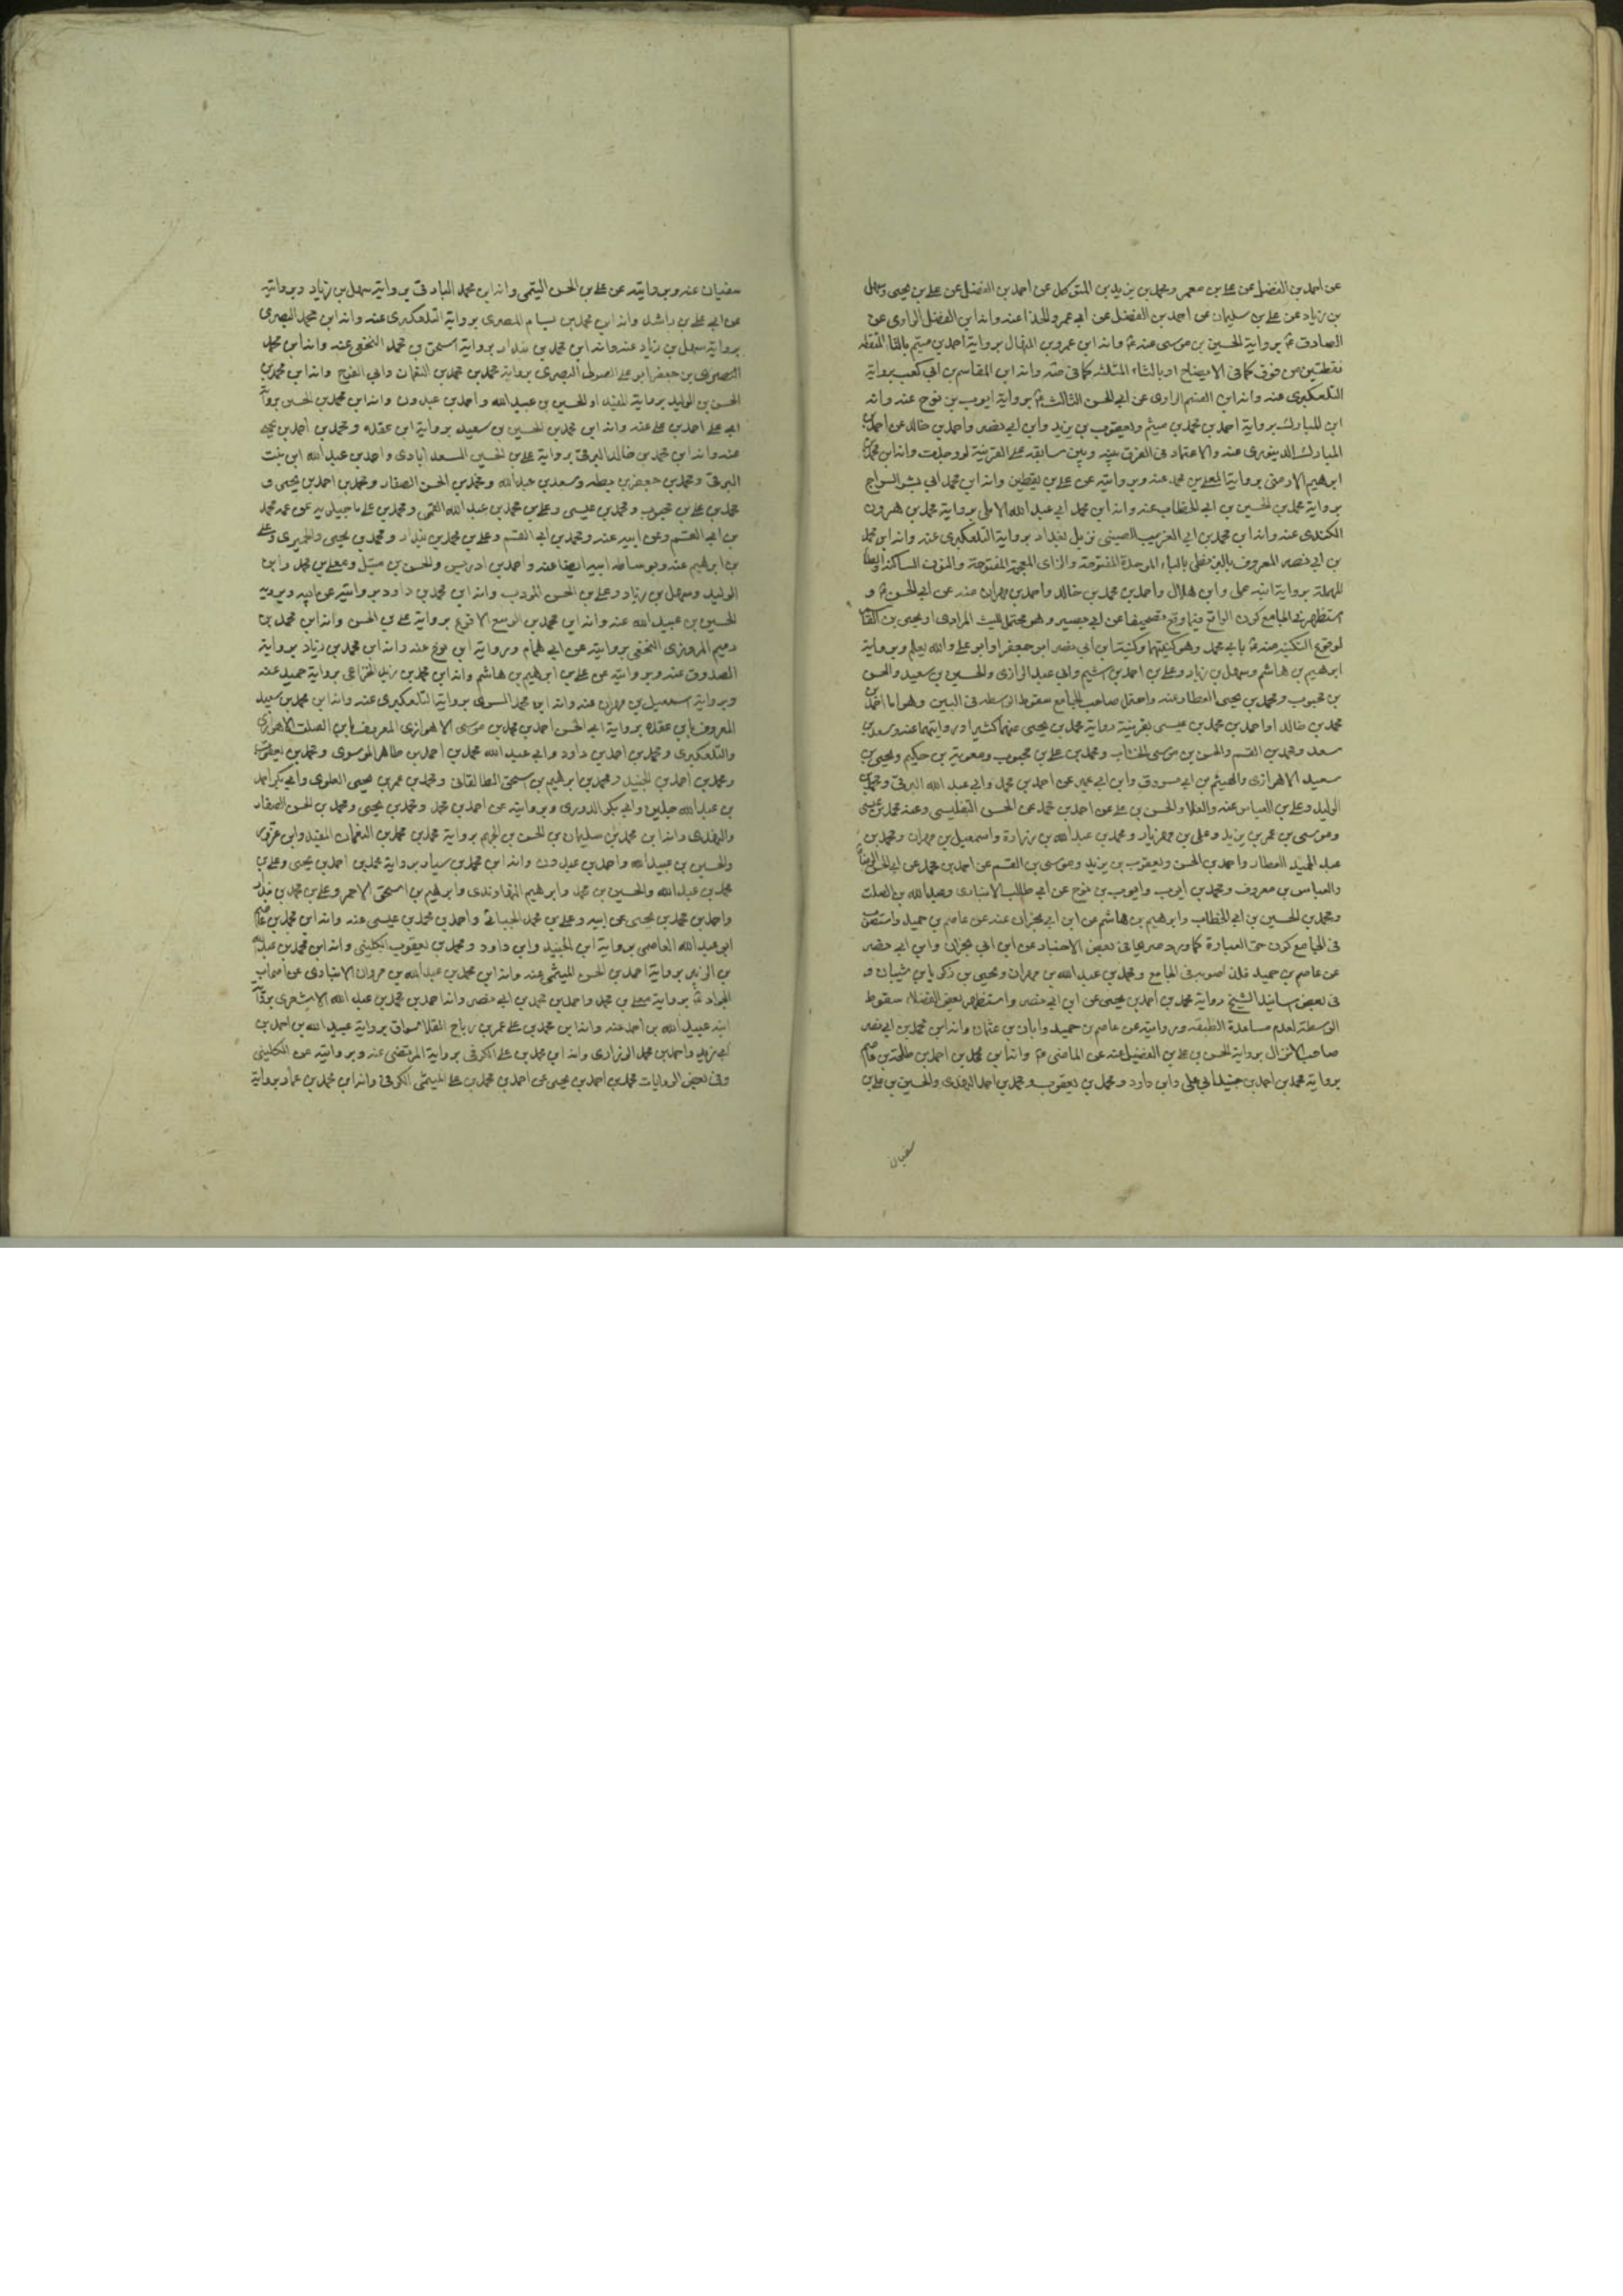 عن احمد بن الفضل عن على بن معمر ومحمد بن يزيد بن المتوكل عن احمد بن الفضل عن على بن يحيى وسهل
بن زياد عن على بن سليمان عن احمد بن الفضل عن ابى عمرو الحذا عنه وانه ابن الفضل الراوى عن
الصادق ع برواية الحسين بن موسى عنه وانه ابن عمرو بن برواية احمد بن ميتم بالتا المثناة
نقطتين من فوق كما فى الايضاح او بالثاء المثلثة كما فى وانه ابن القاسم بن ابى كعب برواية
التلعكبرى عنه وانه ابن الراوى عن ابى الحسن الثالث ع برواية ايوب بن نوح عنه وانه
ابن المبارك برواية احمد بن محمد بن ميثم ويعقوب بن يزيد وابن ابى نصر واحمد بن خالد عن احمد بن
المبارك الدينورى عنه والاعتماد فى الفرق بينه وبين سابقه على القرينة لو وجدت وانه ابن محمد بن
ابرهيم الارمنى برواية المعلى بن محمد عنه وبروايته عن على بن يقطين وانه ابن محمد ابى بشر السراج
برواية محمد بن الحسين بن ابى الخطاب عنه وانه ابن محمد ابى عبد الله الاملى برواية محمد بن هرون
الكندى عنه وانه ابن محمد بن ابى الغريب الصينى نزيل بغداد برواية التلعكبرى عنه وانه ابن محمد
بن ابى نصر المعروف بالبزنطى بالباء الموحدة المفتوحة والزاى المعجمة المفتوحة والنون الساكنة والطا
المهملة برواية ابنه على وابن هلال واحمد بن محمد بن خالد واحمد بن مهران عنه عن ابى الحسن ع و
استظهر فى الجامع كون الواقع تصحيفا عن ابى بصير وهو محتمل لليث المرادى او يحيى بن القاسم
لوقوع التكنية عنه بابى محمد وهو كنيتهما وكنية ابن ابى نصر ابو جعفر او ابو على والله يعلم وبرواية
ابرهيم بن هاشم وسهل بن زياد وعلى بن احمد بن اشيم وابى عبد الله الرازى والحسين بن سعيد والحسن
بن محبوب ومحمد بن يحيى العطار عنه واحتمل صاحب الجامع سقوط الواسطة فى البين وهو اما احمد بن
محمد بن خالد او احمد بن محمد بن عيسى بقرينة رواية محمد بن يحيى عنهما كثيرا وروايتهما عنه وسعد بن
سعد ومحمد بن القسم والحسن بن موسى الخشاب ومحمد بن على بن محبوب ومعوية بن حكيم ويحيى بن
سعيد الاهوازى والهيثم بن ابى مسروق وابن ابى عمير عن احمد بن محمد وابى عبد الله البرقى ومحمد بن
الوليد وعلى بن العباس عنه والعلا والحسن بن على عن احمد بن محمد عن الحسن التفليسى وعنه محمد بن عيسى
وموسى بن عمر بن يزيد وعلى بن مهزيار ومحمد بن عبد الله بن زرارة واسمعيل بن مهران ومحمد بن
عبد الحميد العطار واحمد بن الحسن ويعقوب بن يزيد وموسى بن القسم عن احمد بن محمد عن ابى الحسن الرضا
والعباس بن معروف ومحمد بن ايوب وايوب بن نوح عن ابى طالب الانبارى وعبد الله بن الصلت
ومحمد بن الحسين بن ابى الخطاب وابرهيم بن هاشم عن ابن ابى نجران عنه عن عاصم بن حميد واستصوب
فى الجامع كون حق العبارة كما وصريحا فى بعض الاخبار عن ابن ابى نجران وابن ابى نصر
عن عاصم بن حميد فلذا صوبه فى الجامع ومحمد بن عبد الله بن مهران ويحيى بن زكريا بن شيبان و
فى بعض اسانيد الشيخ رواية محمد بن احمد بن يحيى عن ابن ابى نصر واستظهر بعض الفضلاء سقوط
الوسطة لعدم مساعدة الطبقة وبروايته عن عاصم بن حميد وابان بن عثمان وانه ابن محمد بن ابى نصر
صاحب الانزال برواية الحسن بن على بن الفضيل عنه عن الماضى ع وانه ابن محمد بن احمد بن طلحة بن عاصم
برواية محمد بن احمد بن جنيد ابى على وابن داود ومحمد بن يعقوب ومحمد بن احمد والحسين بن على بن
سفيان
سفيان عنه وبروايته عن على بن الحسن التيمى وانه ابن محمد البارقى برواية سهل بن زياد وبروايته
عن ابى على بن راشد وانه ابن محمد بن بسام المصرى برواية التلعكبرى عنه وانه ابن محمد البصرى
برواية سهل بن زياد عنه وانه ابن محمد بن بندار برواية اسحق بن محمد النخعى عنه وانه ابن محمد
البصرى بن جعفر ابو على الصولى البصرى برواية محمد بن محمد بن النعمان وابى الفرج وانه ابن محمد بن
الحسن بن الوليد برواية المفيد او الحسين بن عبيد الله واحمد بن عبدون وانه ابن محمد بن الحسين برواية
ابى على احمد بن على عنه وانه ابن محمد بن الحسين بن سعيد برواية ابن عقده ومحمد بن احمد بن يحيى
عنه وانه ابن محمد بن خالد البرقى برواية على بن الحسين السعدابادى واحمد بن عبد الله ابن بنت
البرقى ومحمد بن جعفر بن بطه وسعد بن عبد الله ومحمد بن الحسن الصفار ومحمد بن احمد بن يحيى و
محمد بن على بن محبوب ومحمد بن عيسى وعلى بن محمد بن عبد الله القمى ومحمد بن على ماجيلويه عن عمه محمد
بن ابى القسم وعن ابيه عنه ومحمد بن ابى القسم وعلى بن محمد بن بندار ومحمد بن يحيى والحميرى وعلى
بن ابرهيم عنه وبوساطة ابيه ايضا عنه واحمد بن ادريس والحسن بن متيل ومعلى بن محمد وابن
الوليد وسهل بن زياد وعلى بن الحسن المؤدب وانه ابن محمد بن داود بروايته عن ابيه وبرواية
الحسين بن عبيد الله عنه وانه ابن محمد بن الربيع الاقرع برواية على بن الحسن وانه ابن محمد بن
رميم المروزى النخعى بروايته عن ابى همام وبرواية ابن نوح عنه وانه ابن محمد بن زياد برواية
الصدوق عنه وبروايته عن على بن ابرهيم بن هاشم وانه ابن محمد بن زيد الخزاعى برواية حميد عنه
وبرواية اسمعيل بن مهران عنه وانه ابن محمد السرى برواية التلعكبرى عنه وانه ابن محمد بن سعيد
المعروف بابن عقده برواية ابى الحسن احمد بن محمد بن موسى الاهوازى المعروف بابن الصلت الاهوازى
والتلعكبرى ومحمد بن احمد بن داود وابى عبد الله محمد بن احمد بن طاهر الموسوى ومحمد بن يعقوب
ومحمد بن احمد بن الجنيد ومحمد بن ابرهيم بن اسحق الطالقانى ومحمد بن عمر بن يحيى العلوى وابى بكر احمد
بن عبد الله جلين وابى بكر الدورى وبروايته عن احمد بن محمد ومحمد بن يحيى ومحمد بن الحسن الصفار
وانه ابن محمد بن سليمان بن الحسن بن الجهم برواية محمد بن محمد بن النعمان المفيد وابن عزور
والحسين بن عبيد الله واحمد بن عبدون وانه ابن محمد بن سيار برواية محمد بن احمد بن يحيى وعلى بن
محمد بن عبد الله والحسين بن محمد وابرهيم النهاوندى وابرهيم بن اسحق الاحمر وعلى بن محمد بن بندار
واحمد بن محمد بن يحيى عن ابيه وعلى بن محمد الجبائى واحمد بن محمد بن عيسى عنه وانه ابن محمد بن عاصم
ابو عبد الله العاصمى برواية ابن الجنيد وابن داود ومحمد بن يعقوب الكلينى وانه ابن محمد بن عبد الله
بن الزبير برواية احمد بن الحسن الميثمى عنه وانه ابن محمد بن عبد الله بن مروان الانبارى عن اصحاب
الجواد ع برواية معلى بن محمد واحمد بن محمد بن ابى نصر وانه احمد بن محمد بن عبد الله الاشعرى برواية
ابنه عبيد الله بن احمد عنه وانه ابن محمد بن على بن عمر بن رباح القلا السواق برواية عبيد الله بن احمد بن
ابى زيد واحمد بن محمد الزرارى وانه ابن محمد بن على الكوفى برواية المرتضى عنه وبروايته عن الكلينى
وفى بعض الروايات محمد بن احمد بن يحيى عن احمد بن محمد بن على الميثمى الكوفى وانه ابن محمد بن عمار برواية